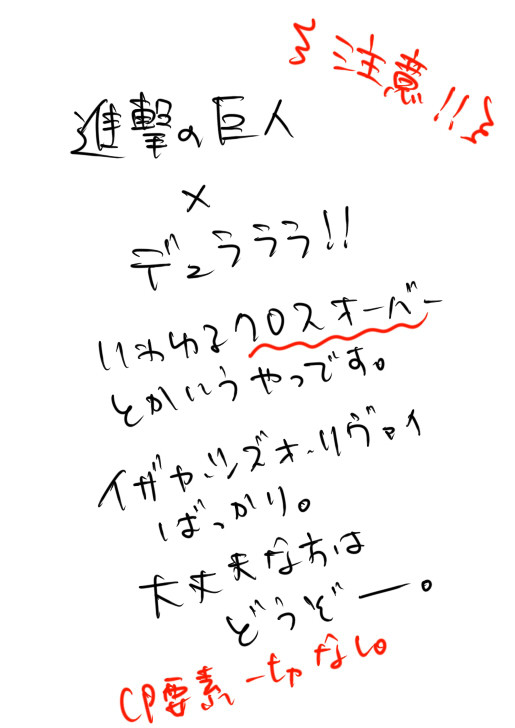 注意!!
進撃の巨人
×
デュラララ!!
いわゆるクロスオーバー
とかいうやつです。
イザヤ・シズオ・リヴァイ
ばっかり。
大丈夫な方は
どうぞー。
CP要素一切なし。